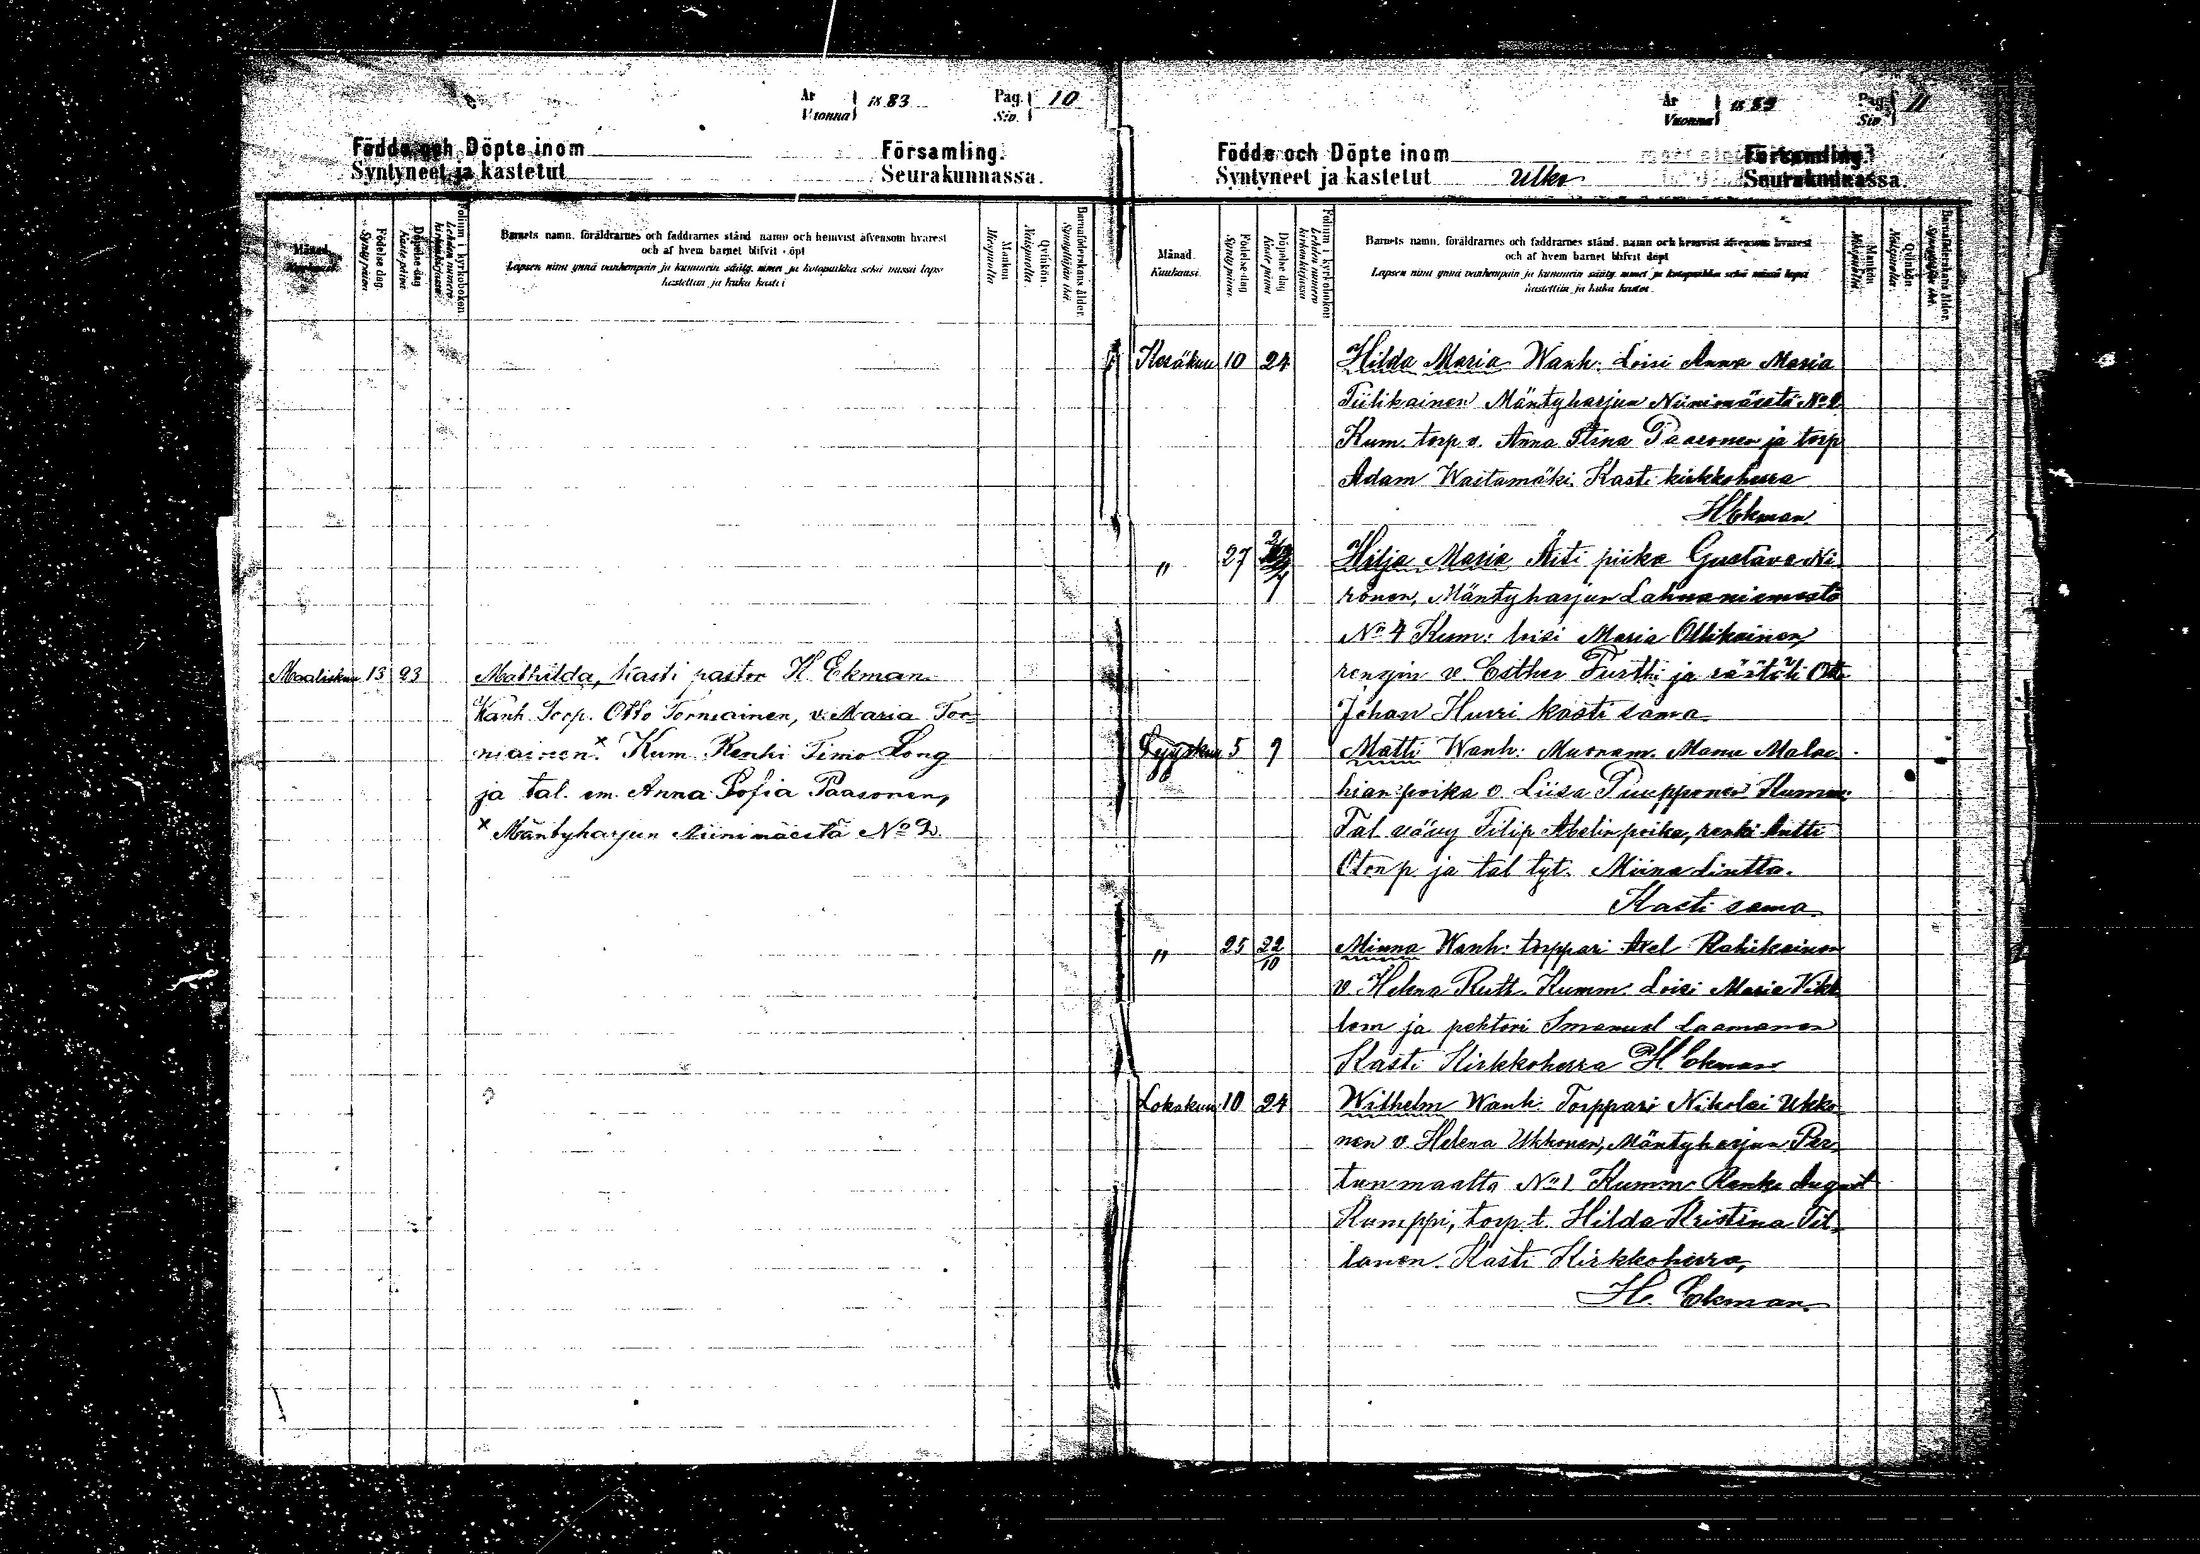 År Vuonna 1883 Pag. Siv. 10
Födde och Döpte inom Församling.
Syntyneet ja kastetut Seurakunnassa.
Månad.
Födelse dag. Syntypäivä.
Döpelse dag Kaste päivä
Folium i kyrkoboken
Barnets namn, föräldrarnes och faddrarnes stånd namn och hemvist äfvensom hvarest
och af hvem barnet blifvit döpt
Lapsen nimi ynnä vanhempain ja kummein sääty, nimet ja kotopaikka sekä missä laps
kastettiin ja kuka kastoi
Mankön Miespuolia
Qvinkön. Naispuolia
Barnaföderskans ålder.
Maaliskuu 13 23 Mathilda, kasti pastor H Ekman
Wanh. Torp. Otto Torniainen, v. Maria Tor-
niainen.x Kum. Renki Timo Long
ja tal. em. Anna Sofia Paasonen,
x Mäntyharjun Niinimäestä No 2.
År Vuonna 1883 Pag. Siv. 11
Födde och Döpte inom Församling
Syntyneet ja kastetut Ulko Seurakunnassa.
Månad. Kuukausi.
Födelse-dag Syntypäivä
Döpelse dag Kaste päivä
Folium i kyrkoboken
Barnets namn, föräldrarnes och faddrarnes stånd, namn och hemvist äfvensom hvarest
och af hvem barnet blifvit döpt
Lapsen nimi ynnä vanhempain ja kummein sääty, nimet ja kotopaikka sekä missä lapsi
kastettiin ja kuka kastoi.
Mankön
Qvinkön Naispuolia
Barnaföderskans ålder.
Kesäkuu 10 24 Hilda Maria Wanh: Loisi Anna Maria
Tiilikainen Mäntyharjun Niinimäestä No 2
Kum. torp v. Anna Stina Paasonen ja torp
Adam Waitamäki. Kasti kirkkoherra
H Ekman
" 27 Hilja Maria Äiti piika Gustava Ni-
ronen, Mäntyharjun Lahnaniemestä
No 4 Kum: loisi Maria Ollikainen,
rengin v Esther Turtti ja räätäli Otto
Johan Hurri kasti sama
Syyskuu 5 9 Matti Wanh: Muonam. Manu Malac-
hian poika v. Liisa Pumpponen Kumm:
Tal vävy Filip Abelin poika, renki Antti
Oton p. ja tal tyt. Miina Lintta.
Kasti sama
" 25 22/10 Minna Wanh: torppari Axel Rahikainen
v. Helena Ruth. Kumm. Loisi Maria
ja pehtori Imanuel Laamanen
Kasti Kirkkoherra H Ekman
Lokakuu 10 24 Wilhelm Wanh: Torppari Nikolai Ukko-
nen v Helena Ukkonen, Mäntyharjun Per-
tunmaalta No 1 Kumm: Renki August
Kumppi, torp. t. Hilda Kristina Til-
lanen. Kasti Kirkkoherra,
H. Ekman.